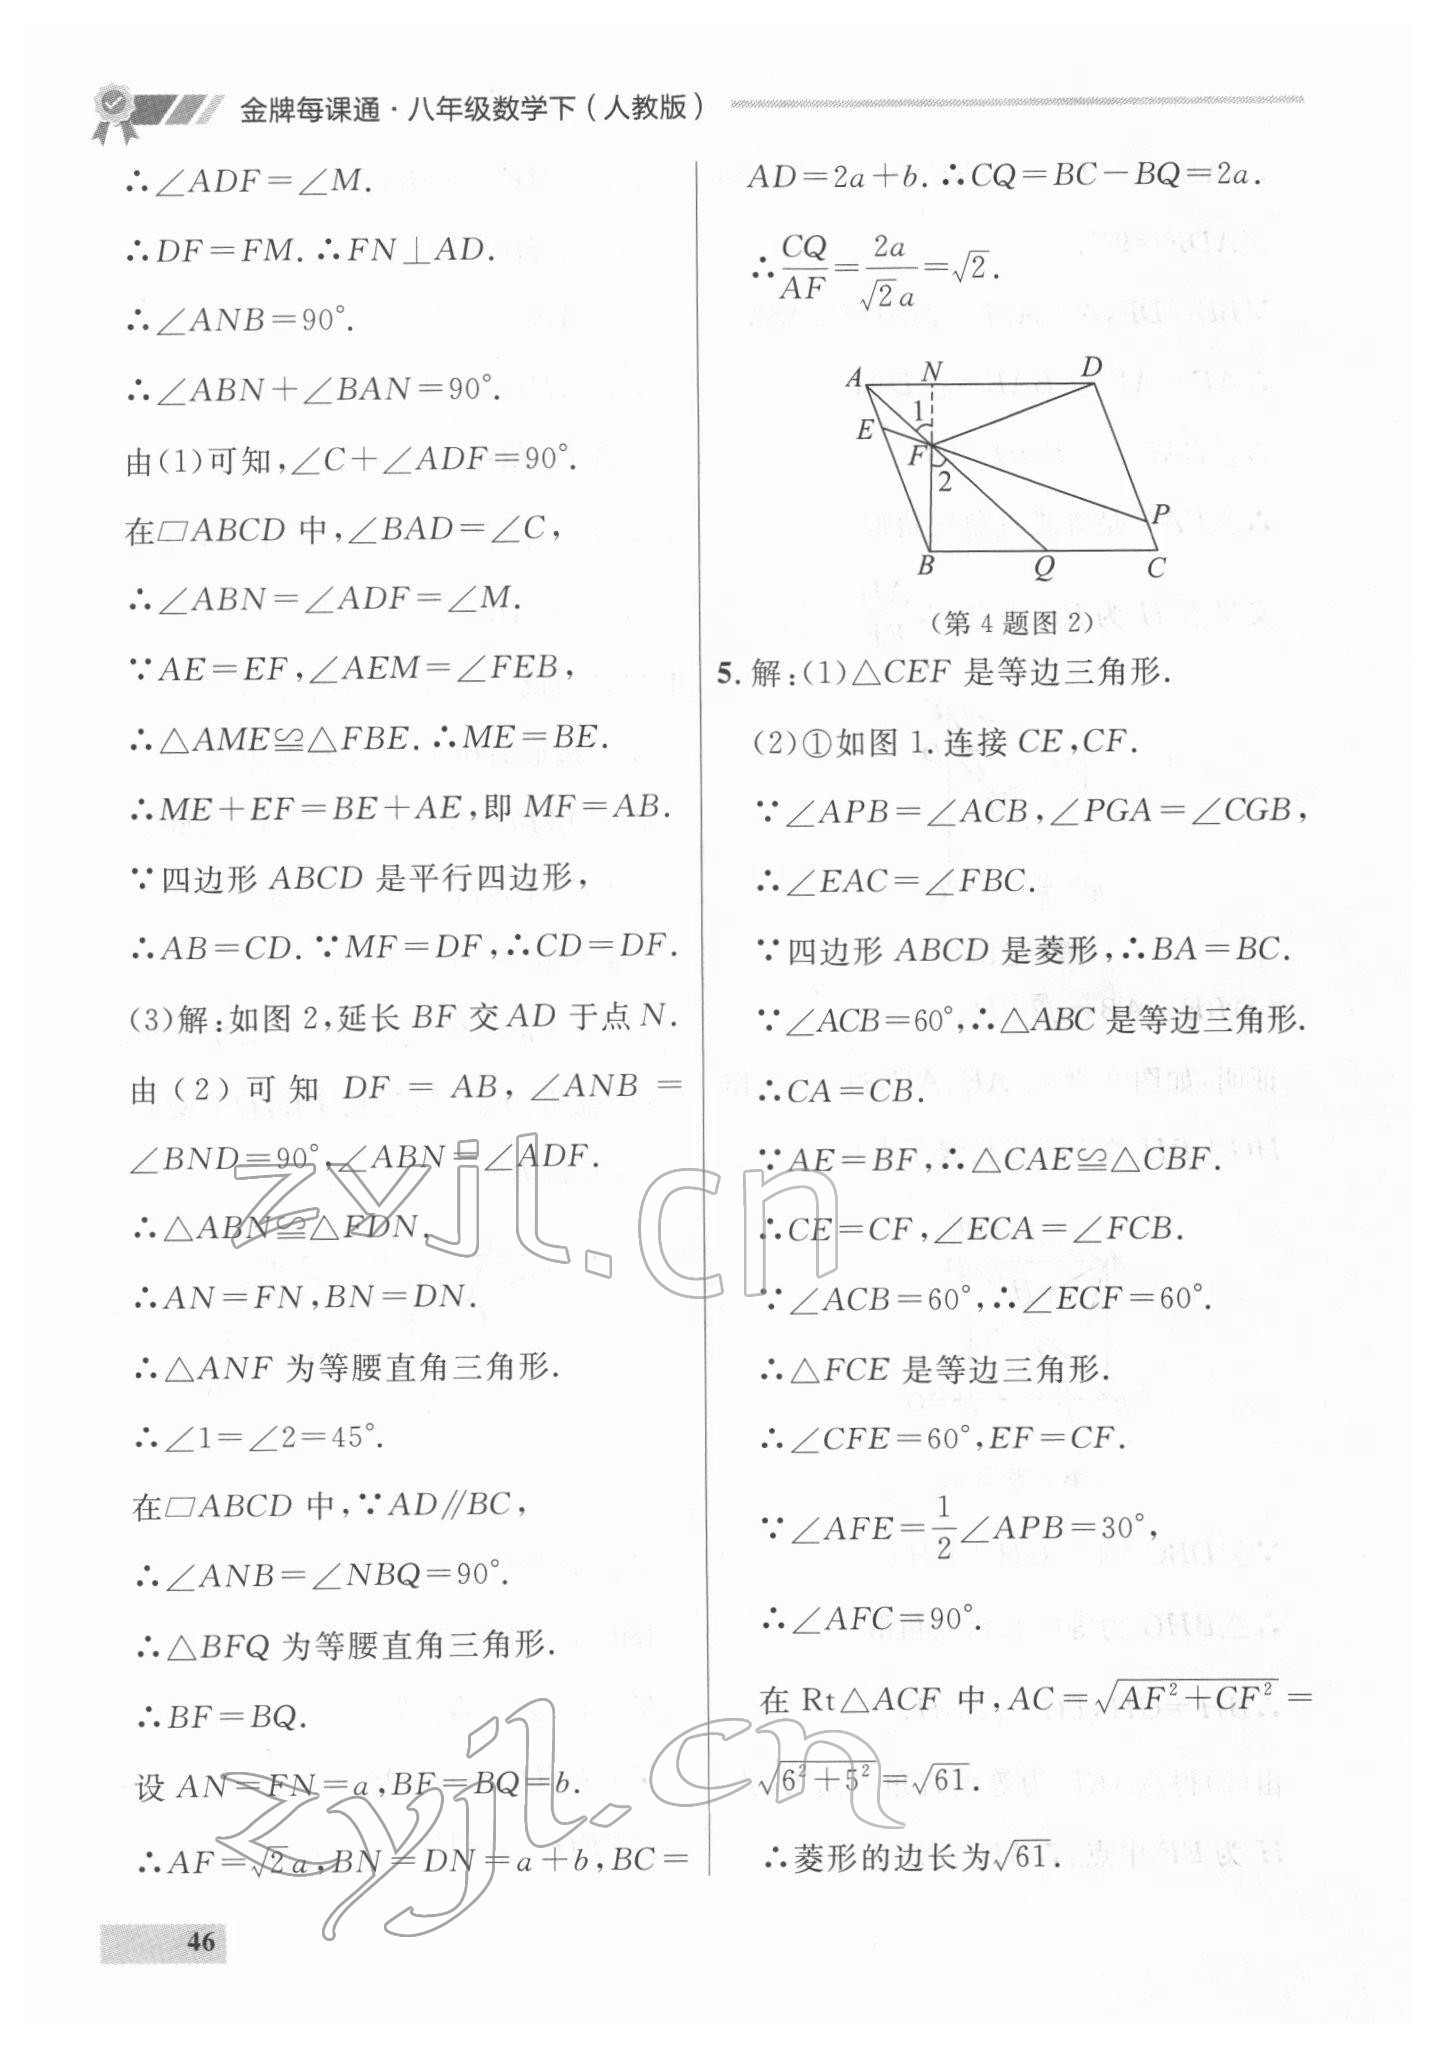 金牌每课通·八年级数学下(人教版)
∴∠ADF=∠M.
∴DF=FM.∴FN⊥AD.
∴∠ANB=90°.
∴∠ABN+∠BAN=90°.
由(1)可知,∠C+∠ADF=90°.
在▱ABCD中,∠BAD=∠C,
∴∠ABN=∠ADF=∠M.
∵AE=EF,∠AEM=∠FEB,
∴△AME≌△FBE.∴ME=BE.
∴ME+EF=BE+AE,即MF=AB.
∵四边形ABCD是平行四边形,
∴AB=CD.∵MF=DF,∴CD=DF.
(3)解:如图2,延长BF交AD于点N.
由(2)可知 DF=AB,∠ANB=
∠BND=90°,∠ABN=∠ADF.
∴△ABN≌△FDN,
∴AN=FN,BN=DN.
∴△ANF为等腰直角三角形.
∴∠1=∠2=45°.
在▱ABCD中,∵AD∥BC,
∴∠ANB=∠NBQ=90°.
∴△BFQ为等腰直角三角形.
∴BF=BQ.
设AN=FN=a,BF=BQ=b.
∴AF=√2a,BN=DN=a+b,BC=
AD=2a+b.∴CQ=BC-BQ=2a.
∴CQ/AF=2a/√2a=√2.
A N D
E 1
F 2
P
B Q C
(第4题图2)
5.解:(1)△CEF是等边三角形.
(2)①如图1.连接CE,CF.
∵∠APB=∠ACB,∠PGA=∠CGB,
∴∠EAC=∠FBC.
∵四边形ABCD是菱形,∴BA=BC.
∵∠ACB=60°,∴△ABC是等边三角形.
∴CA=CB.
∵AE=BF,∴△CAE≌△CBF.
∴CE=CF,∠ECA=∠FCB.
∵∠ACB=60°,∴∠ECF=60°.
∴△FCE是等边三角形.
∴∠CFE=60°,EF=CF.
∵∠AFE=1/2∠APB=30°,
∴∠AFC=90°.
在Rt△ACF中,AC=√(AF²+CF²)=
√(6²+5²)=√61.
∴菱形的边长为√61.
zyjl.cn
zyjl.cn
46